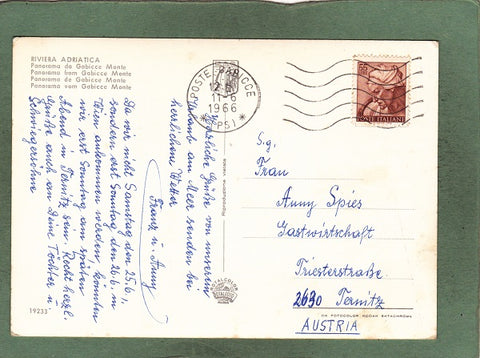 RIVIERA ADRIATICA
Panorama da Gabicce Monte
Panorama from Gabicce Monte
Panorama de Gabicce Monte
Panorama vom Gabicce Monte
POSTE GABICCE
11-6
1966
(PS)
POSTE ITALIANE
Herzliche Grüße von unserem
Urlaub am Meer senden bei
herrlichem Wetter
Franz u. Anny
Da wir nicht Samstag den 25.6.,
sondern erst Sonntag den 26.6. in
Wien ankommen werden, könnten
wir erst Sonntag am späten
Abend in Ternitz sein. Recht herzl.
Grüße auch an Deine Töchter u.
Schwiegersöhne
S.g.
Frau
Anny Spies
Gastwirtschaft
Triesterstraße
2630 Ternitz
AUSTRIA
19233